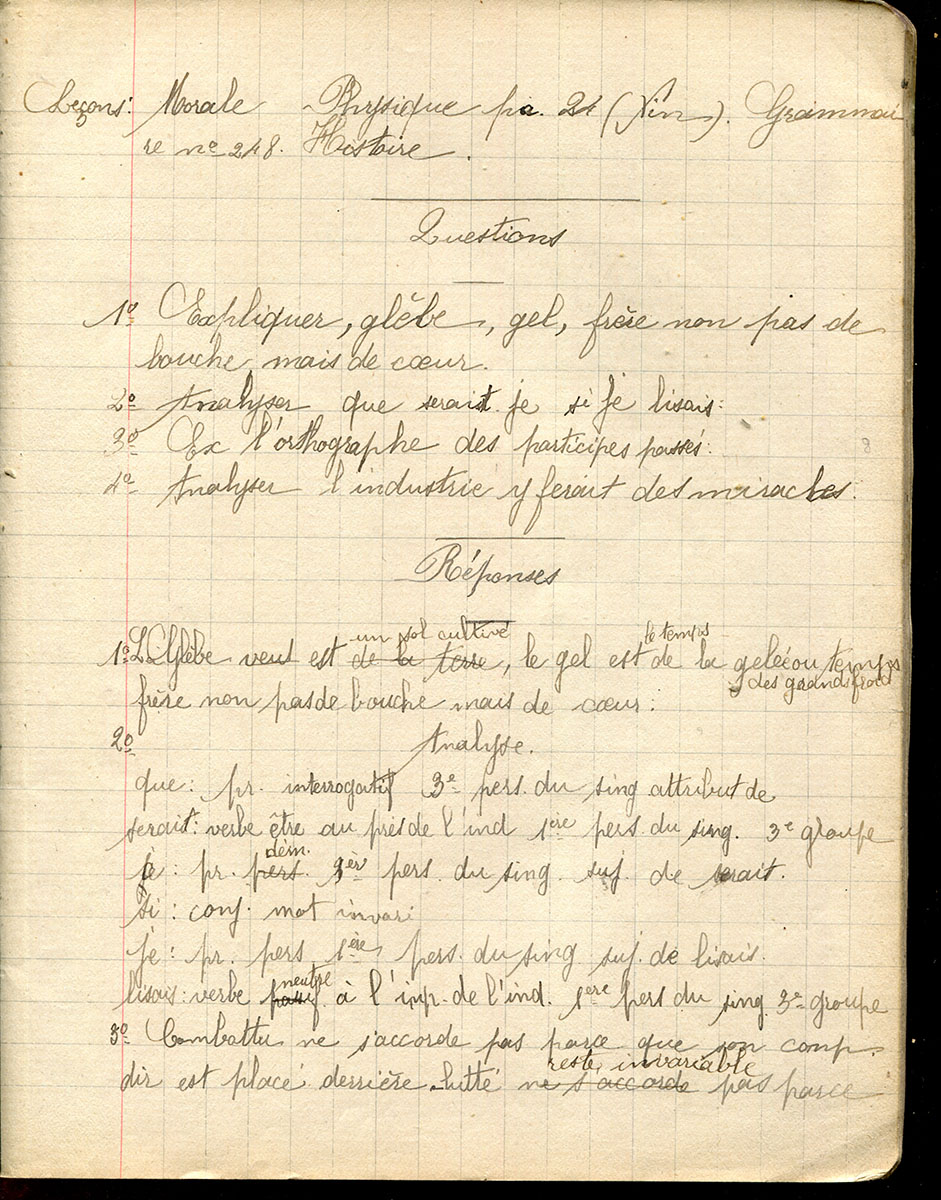 Leçons: Morale - Physique pa. 24 (fin). Grammai
re no 248. Histoire.
Questions
1o Expliquer, glèbe, gel, frère non pas de
bouche mais de cœur.
2o Analyser que serait je si je lisais:
3o Ex l'orthographe des participes passés:
4o Analyser l'industrie y ferait des miracles.
Réponses
un sol cultivé le temps
1o Glèbe veut est de la terre, le gel est de la gelée ou temps
des grands froid
frère non pas de bouche mais de cœur:
2o Analyse.
que: pr. interrogatif 3e pers. du sing attribut de
serait: verbe être au prés de l'ind 1ere pers. du sing. 3e groupe
dém.
je: pr. pers. pers. du sing. suj. de serait.
si: conj. mot invar:
je: pr. pers 1ère pers. du sing suj. de lisais.
neutre
lisais: verbe passif à l'imp. de l'ind. 1ere pers du sing 3e groupe
3o Combattu ne s'accorde pas parce que son comp.
reste invariable
dir est placé derrière lutté ne s'accorde pas parce